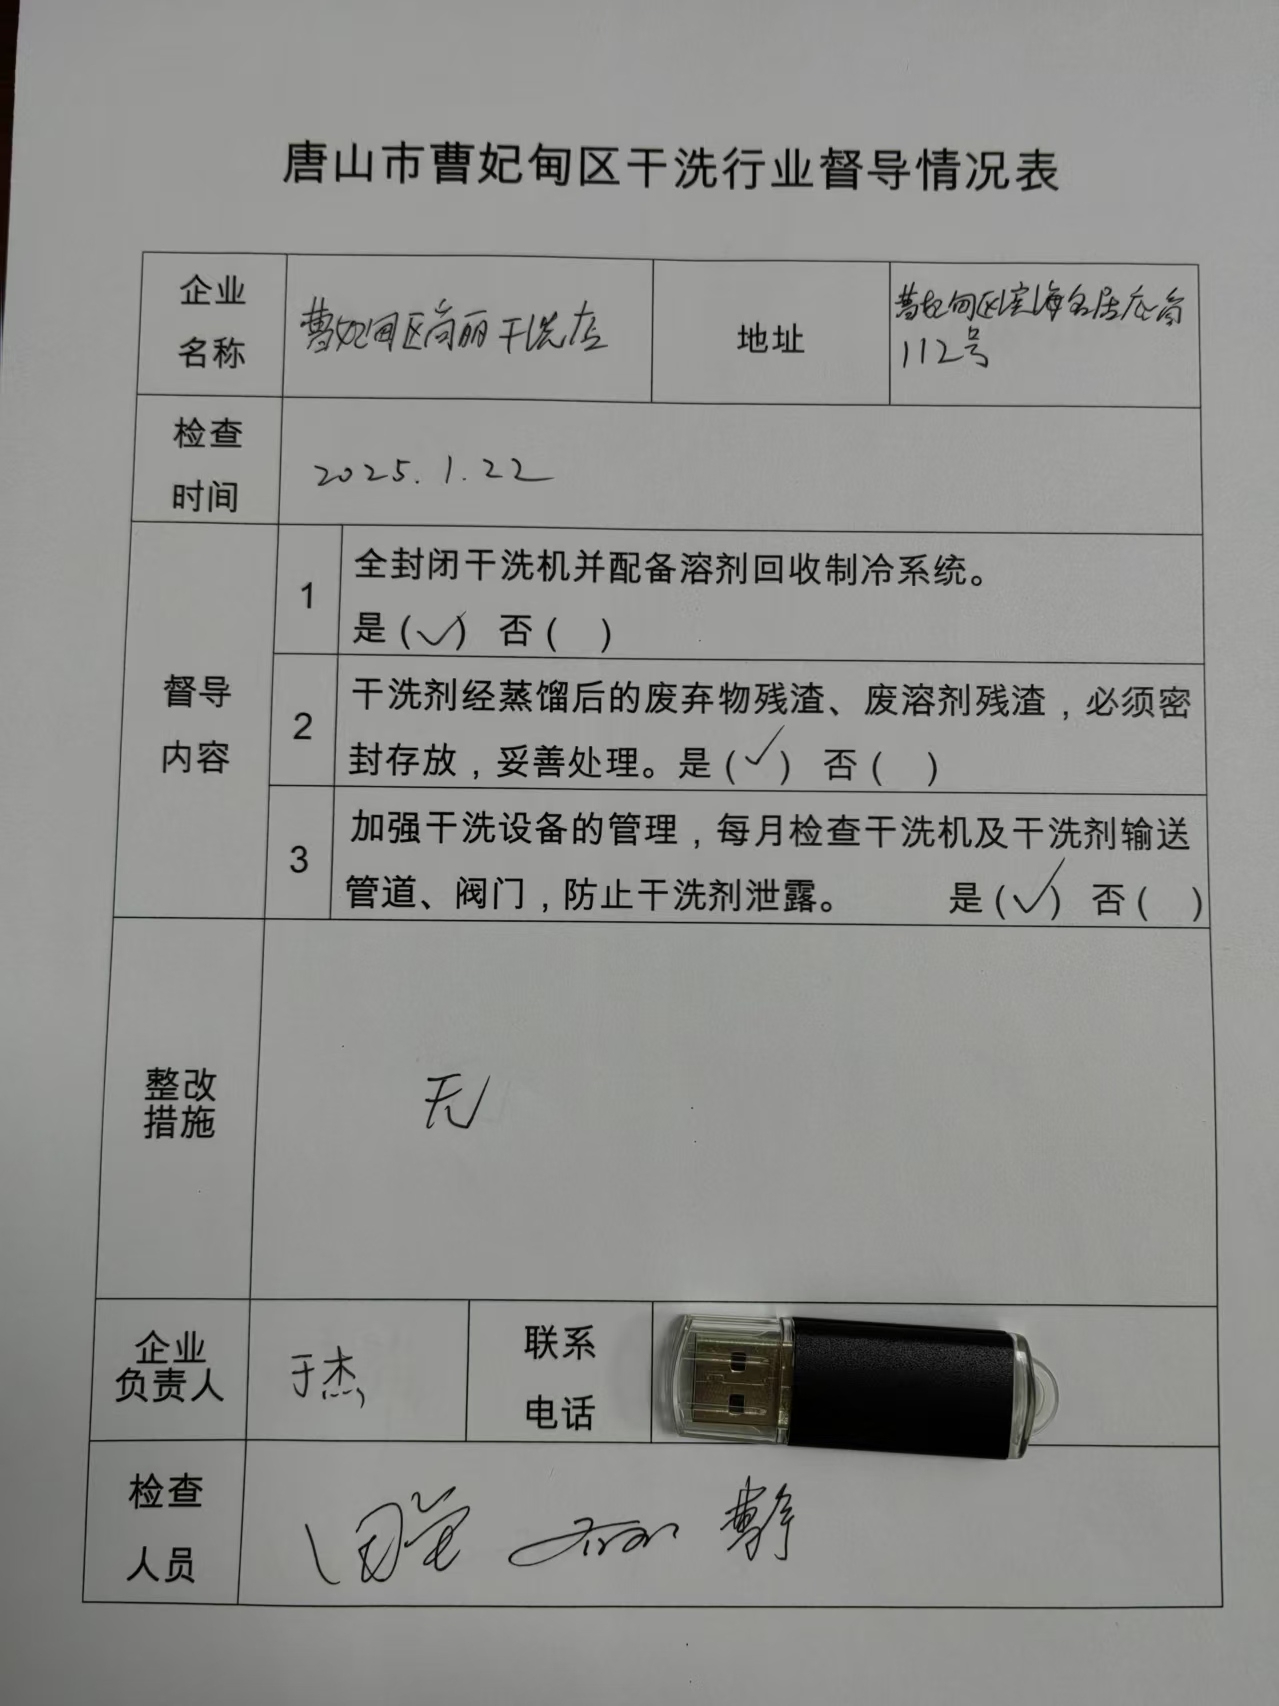 唐山市曹妃甸区干洗行业督导情况表
企业
名称
曹妃甸区尚丽干洗店
地址
曹妃甸区滨海名居底商
112号
检查
时间
2025.1.22
督导
内容
1
全封闭干洗机并配备溶剂回收制冷系统。
是(✓) 否( )
2
干洗剂经蒸馏后的废弃物残渣、废溶剂残渣，必须密
封存放，妥善处理。是(✓) 否( )
3
加强干洗设备的管理，每月检查干洗机及干洗剂输送
管道、阀门，防止干洗剂泄露。 是(✓) 否( )
整改
措施
无
企业
负责人
于杰
联系
电话
检查
人员
曹静